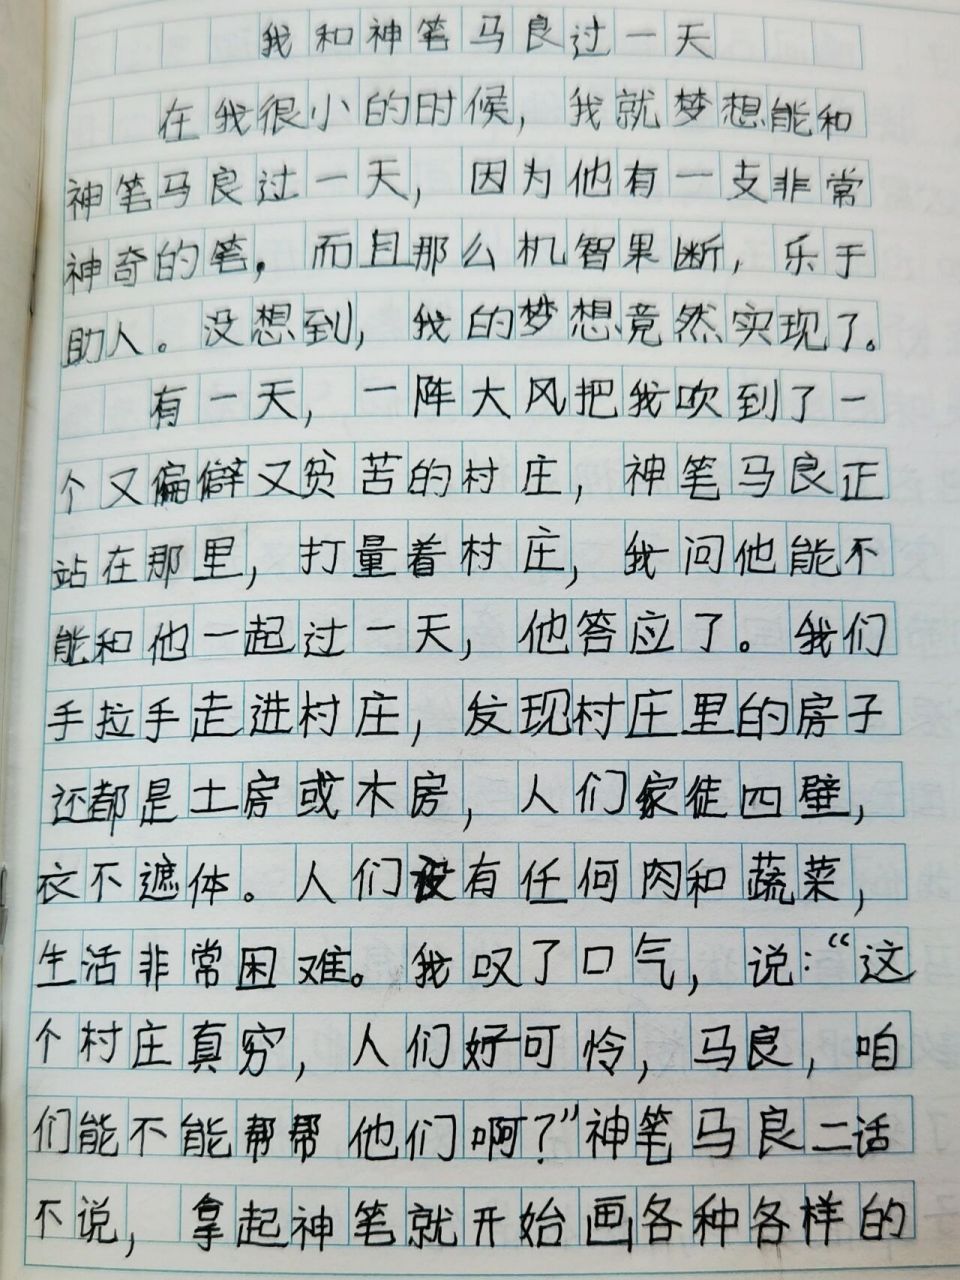 我和神笔马良过一天
在我很小的时候，我就梦想能和
神笔马良过一天，因为他有一支非常
神奇的笔，而且那么机智果断，乐于
助人。没想到，我的梦想竟然实现了。
有一天，一阵大风把我吹到了一
个又偏僻又贫苦的村庄，神笔马良正
站在那里，打量着村庄，我问他能不
能和他一起过一天，他答应了。我们
手拉手走进村庄，发现村庄里的房子
还都是土房或木房，人们家徒四壁，
衣不遮体。人们没有任何肉和蔬菜，
生活非常困难。我叹了口气，说：“这
个村庄真穷，人们好可怜，马良，咱
们能不能帮帮他们啊？”神笔马良二话
不说，拿起神笔就开始画各种各样的